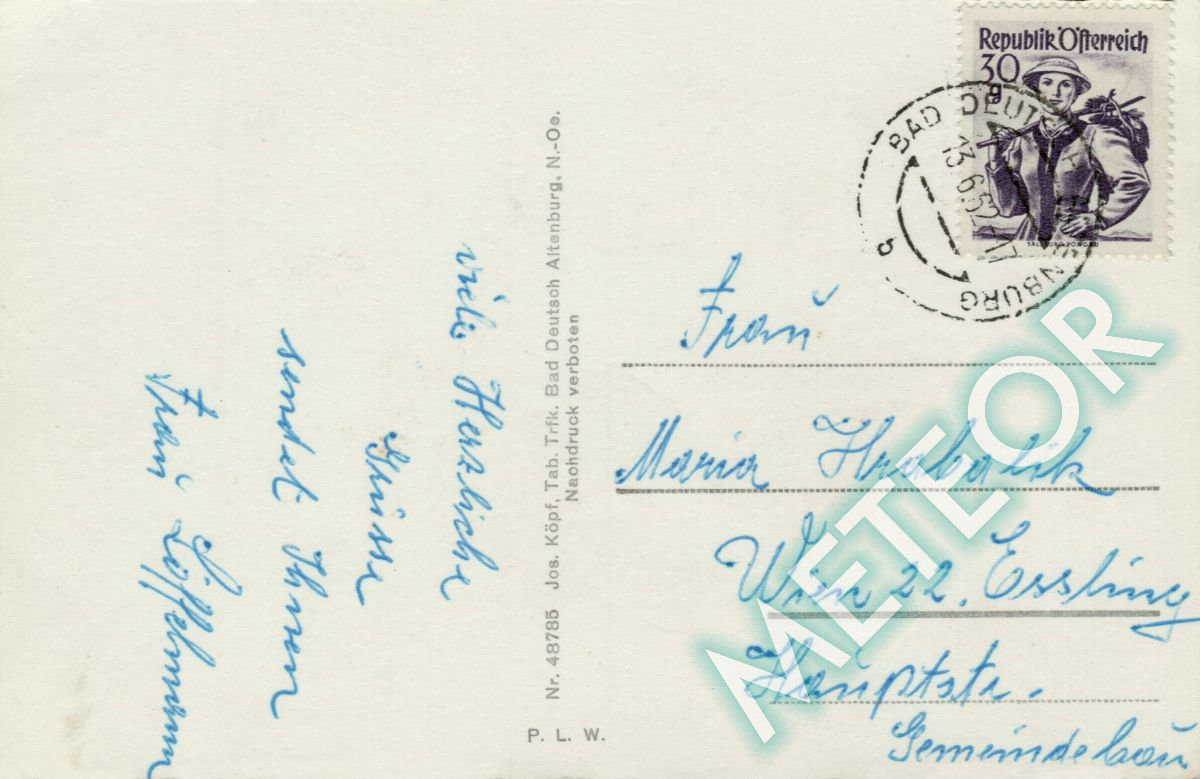 Republik Österreich
30
g
SALZBURG-PONGAU
BAD DEUTSCH ALTENBURG
13.6.52-17
b
viele Herzliche
Grüsse
sendet Ihnen
Frau Löffelmann
Nr. 48785 Jos. Köpf, Tab. Trfk. Bad Deutsch Altenburg, N.-Oe.
Nachdruck verboten
P. L. W.
Frau
Maria Hrabalik
Wien 22. Essling
Hauptstr.
Gemeindebau
METEOR